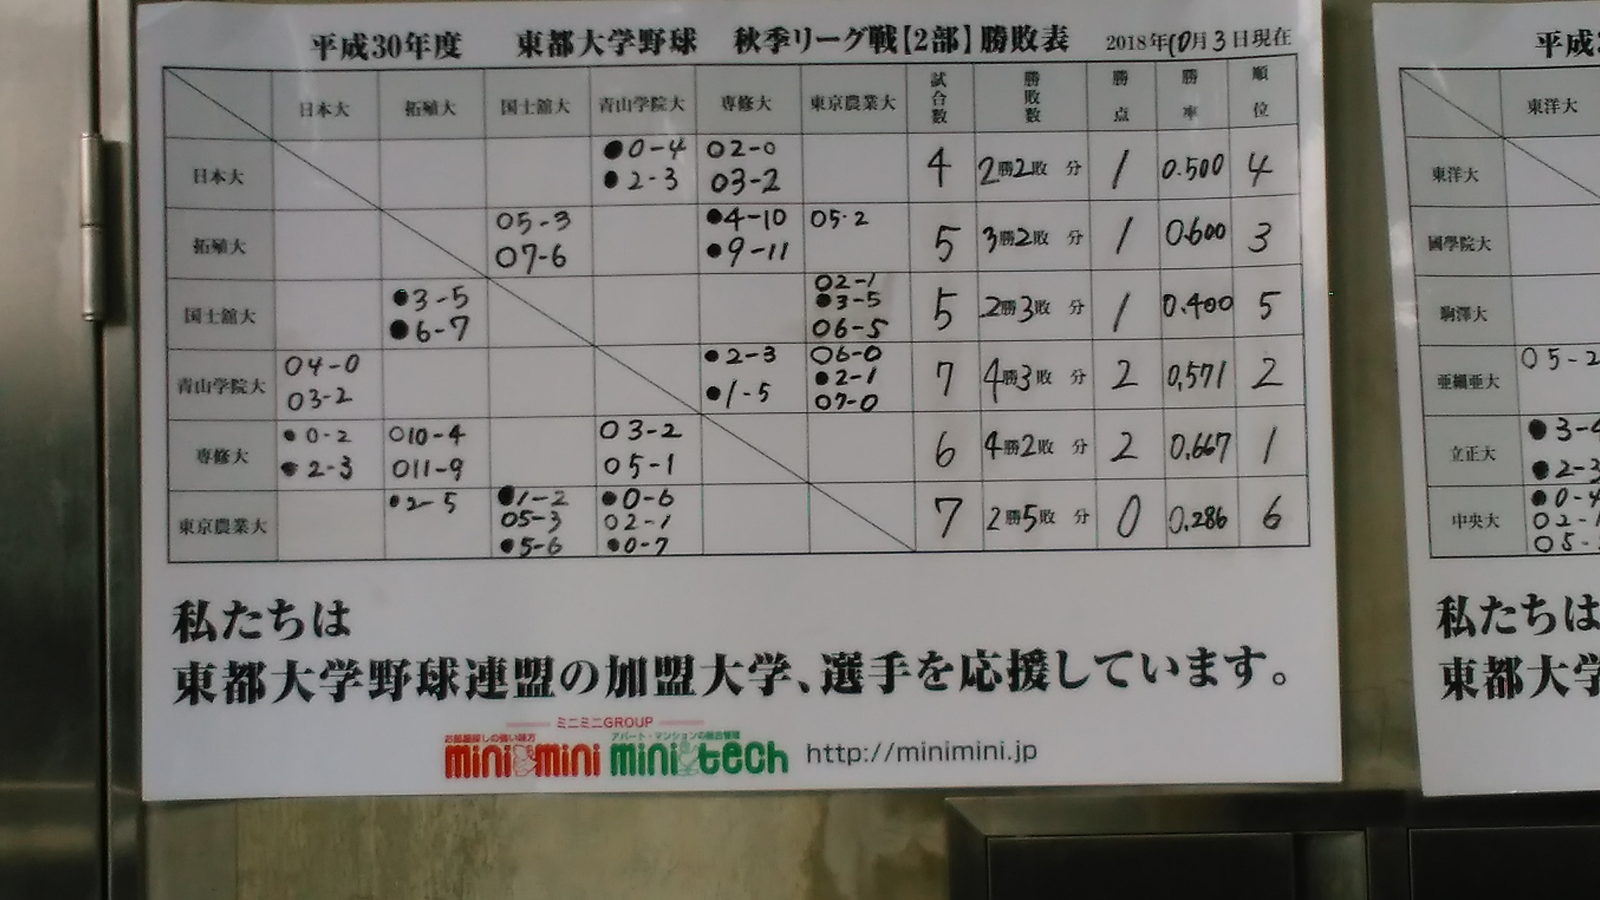 平成30年度 東都大学野球 秋季リーグ戦【2部】勝敗表 2018年10月3日現在
日本大 拓殖大 国士舘大 青山学院大 専修大 東京農業大 試合数 勝敗数 勝点 勝率 順位
日本大 ●0-4 ●2-3 ○2-0 ○3-2 4 2勝2敗 分 1 0.500 4
拓殖大 ○5-3 ○7-6 ●4-10 ●9-11 ○5-2 5 3勝2敗 分 1 0.600 3
国士舘大 ●3-5 ●6-7 ○2-1 ●3-5 ○6-5 5 2勝3敗 分 1 0.400 5
青山学院大 ○4-0 ○3-2 ●2-3 ●1-5 ○6-0 ●2-1 ○7-0 7 4勝3敗 分 2 0,571 2
専修大 ●0-2 ●2-3 ○10-4 ○11-9 ○3-2 ○5-1 6 4勝2敗 分 2 0.667 1
東京農業大 ●2-5 ●1-2 ○5-3 ●5-6 ●0-6 ○2-1 ●0-7 7 2勝5敗 分 0 0.286 6
私たちは
東都大学野球連盟の加盟大学、選手を応援しています。
ミニミニGROUP
お部屋探しの強い味方
minimini
アパート・マンションの総合管理
minitech
http://minimini.jp
平成
東洋大
東洋大
國學院大
駒澤大
亜細亜大 ○5-2
立正大 ●3-4 ●2-3
中央大 ●0-4 ○2-1 ○5-
私たちは
東都大学